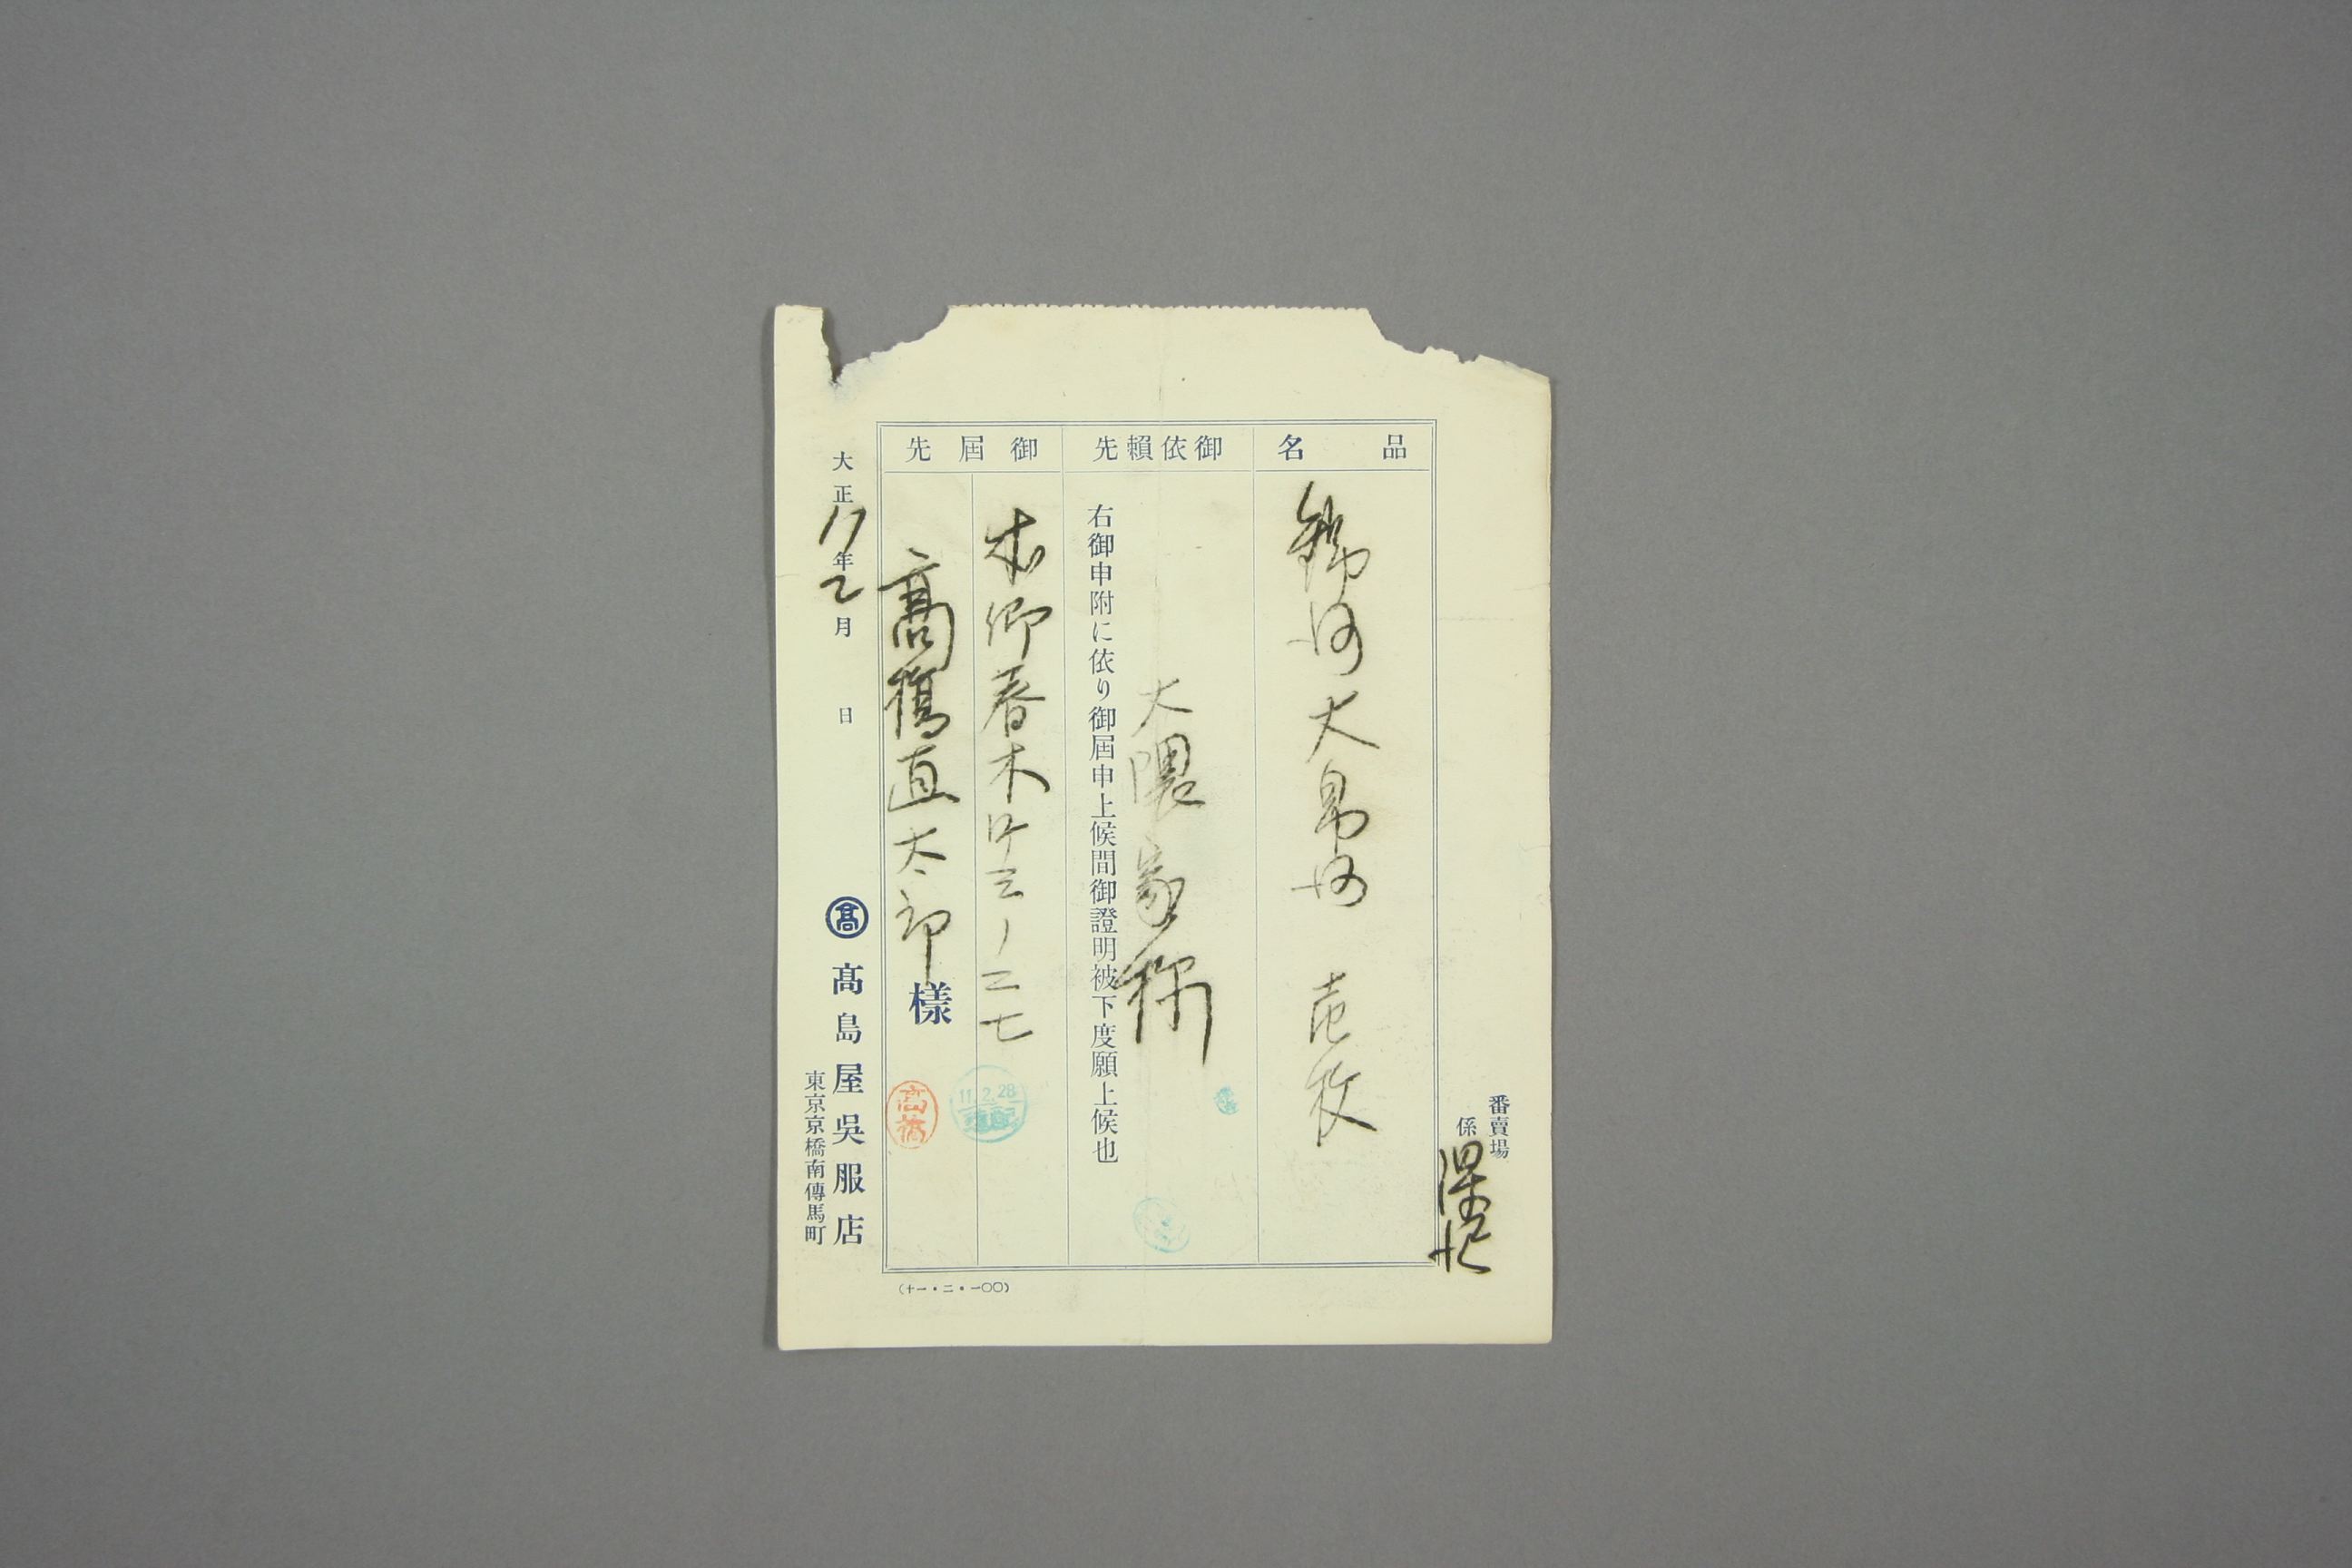 番賣場
係
品名
大 壱枚
御依賴先
大隈家様
右御申附に依り御屆申上候間御證明被下度願上候也
御屆先
本郷春木町三ノ二七
高橋直太郎様
高橋
11.2.28
大正11年2月 日
髙
髙島屋吳服店
東京京橋南傳馬町
(十一・二・一〇〇)